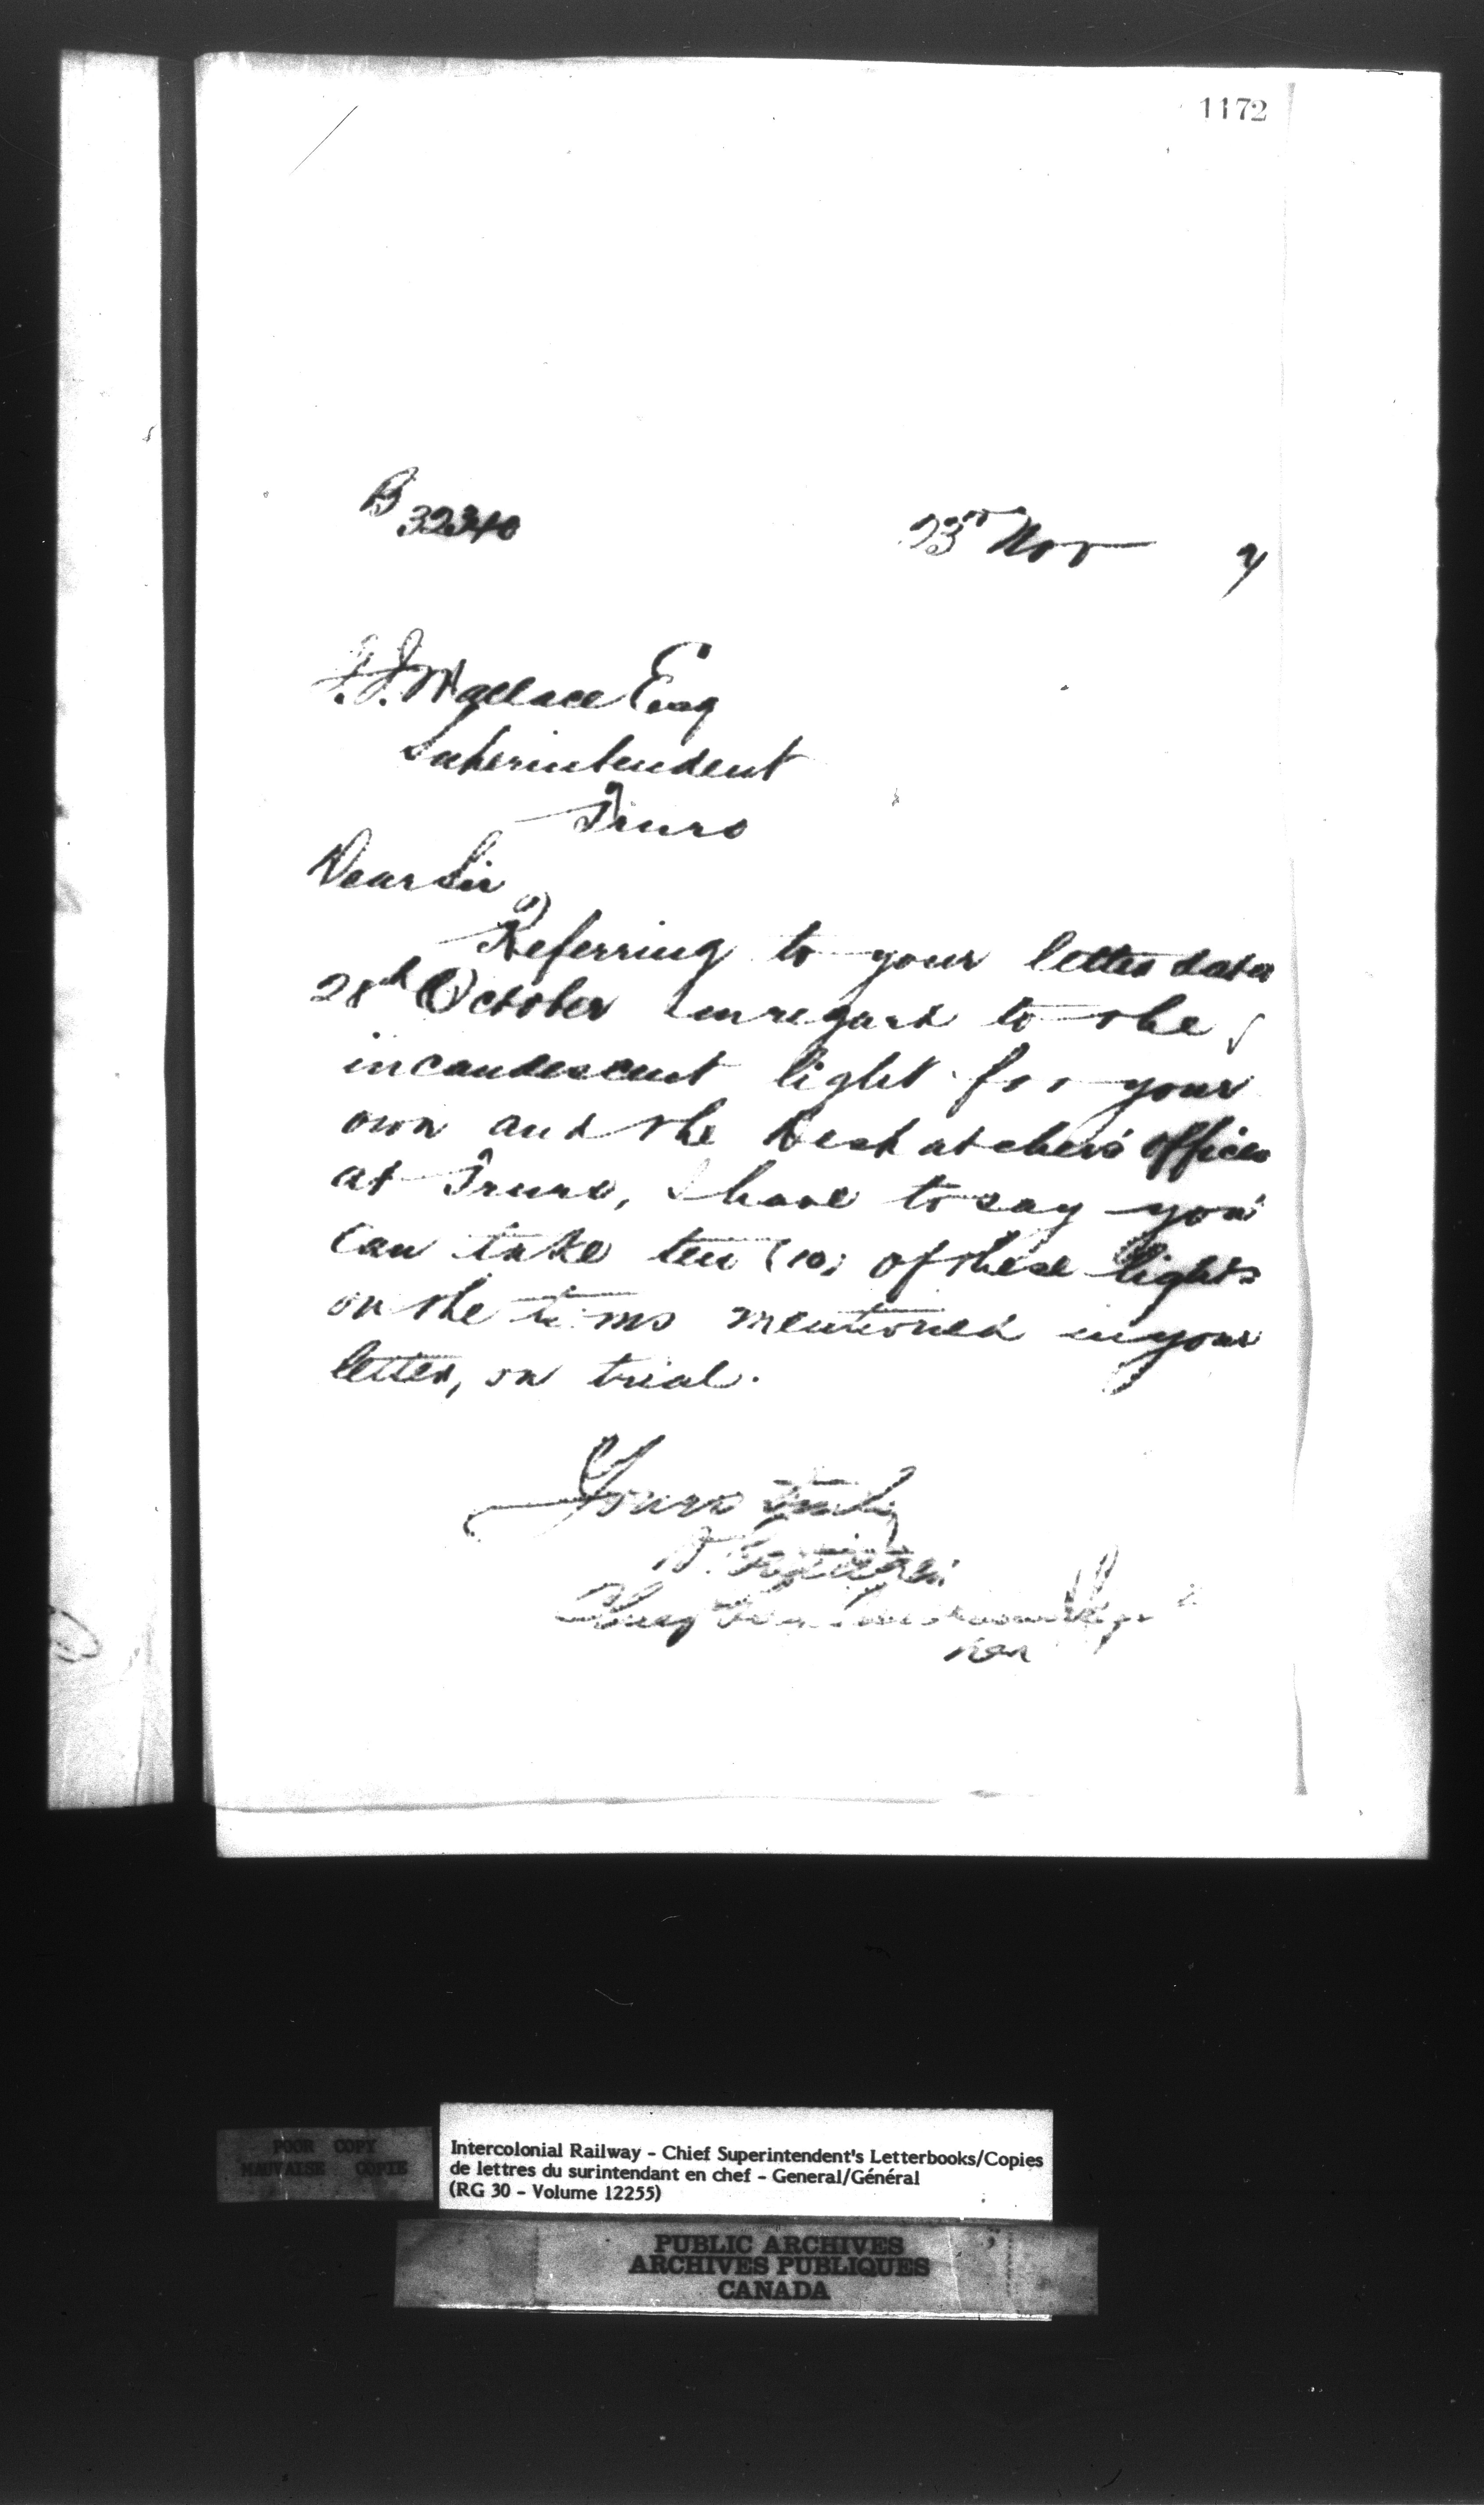 1172
B 32340
23rd Nov 7
J. J. Wallace Esq
Superintendent
Truro
Dear Sir
Referring to your letter dated
28th October in regard to the
incandescent light for your
own and the Despatchers' offices
at Truro, I have to say you
can take ten (10) of these lights
on the terms mentioned in your
letter, on trial.
Yours truly
D. Pottinger
Chief Superintendent
POOR COPY
MAUVAISE COPIE
Intercolonial Railway - Chief Superintendent's Letterbooks/Copies
de lettres du surintendant en chef - General/Général
(RG 30 - Volume 12255)
PUBLIC ARCHIVES
ARCHIVES PUBLIQUES
CANADA